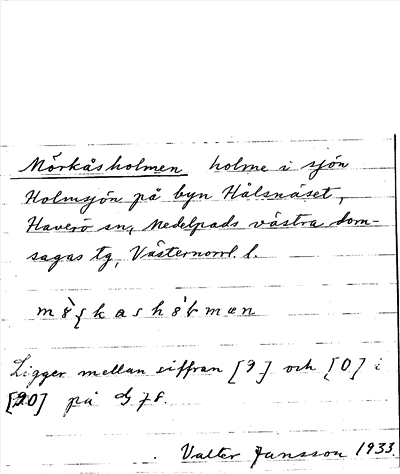 Mörkåsholmen holme i sjön
Holmsjön på byn Hålsnäset,
Haverö sn, Medelpads västra dom-
sagas tg, Västernorrl. l.
Ligger mellan siffran [9] och [0] i
[90] på G78.
Valter Jansson 1933.